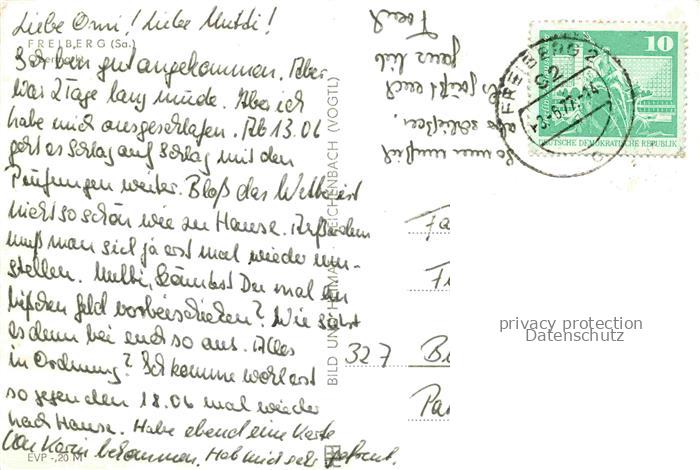 Liebe Omi! Liebe Mutti!
FREIBERG (Sa.)
Ich bin gut angekommen. Aber
war 2 Tage lang müde. Aber ich
habe mich ausgeschlafen. Ab 13.06
geht es Schlag auf Schlag mit den
Prüfungen weiter. Bloß das Wetter ist
nicht so schön wie zu Hause. Außerdem
muß man sich ja erst mal wieder um-
stellen. Mutti, könntest Du mal ein
bißchen Geld vorbeischicken? Wie sieht
es denn bei euch so aus. Alles
in Ordnung? Ich komme wohl erst
so gegen den 18.06 mal wieder
nach Hause. Habe ebend eine Karte
von Karin bekommen. Hab mich sehr gefreut.
EVP -,20 M
BILD UND HEIMAT REICHENBACH (VOGTL)
So nun muß ich
also schließen.
Es grüßt euch
ganz lieb
FREIBERG 2
92
-3.-6.77.-14
10
DEUTSCHE DEMOKRATISCHE REPUBLIK
Fa
Fr
327 B
Pa
privacy protection
Datenschutz